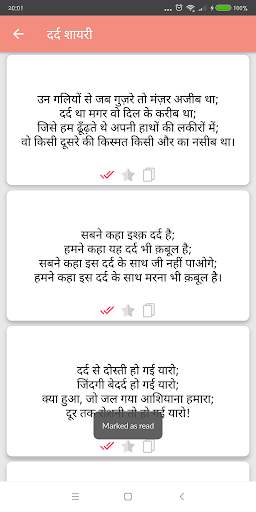 20:01
100%
दर्द शायरी
उन गलियों से जब गुज़रे तो मंज़र अजीब था;
दर्द था मगर वो दिल के करीब था;
जिसे हम ढूँढ़ते थे अपनी हाथों की लकीरों में;
वो किसी दूसरे की किस्मत किसी और का नसीब था।
सबने कहा इश्क़ दर्द है;
हमने कहा यह दर्द भी क़बूल है;
सबने कहा इस दर्द के साथ जी नहीं पाओगे;
हमने कहा इस दर्द के साथ मरना भी क़बूल है।
दर्द से दोस्ती हो गई यारो;
जिंदगी बेदर्द हो गई यारो;
क्या हुआ, जो जल गया आशियाना हमारा;
दूर तक रोशनी तो हो गई यारो!
Marked as read